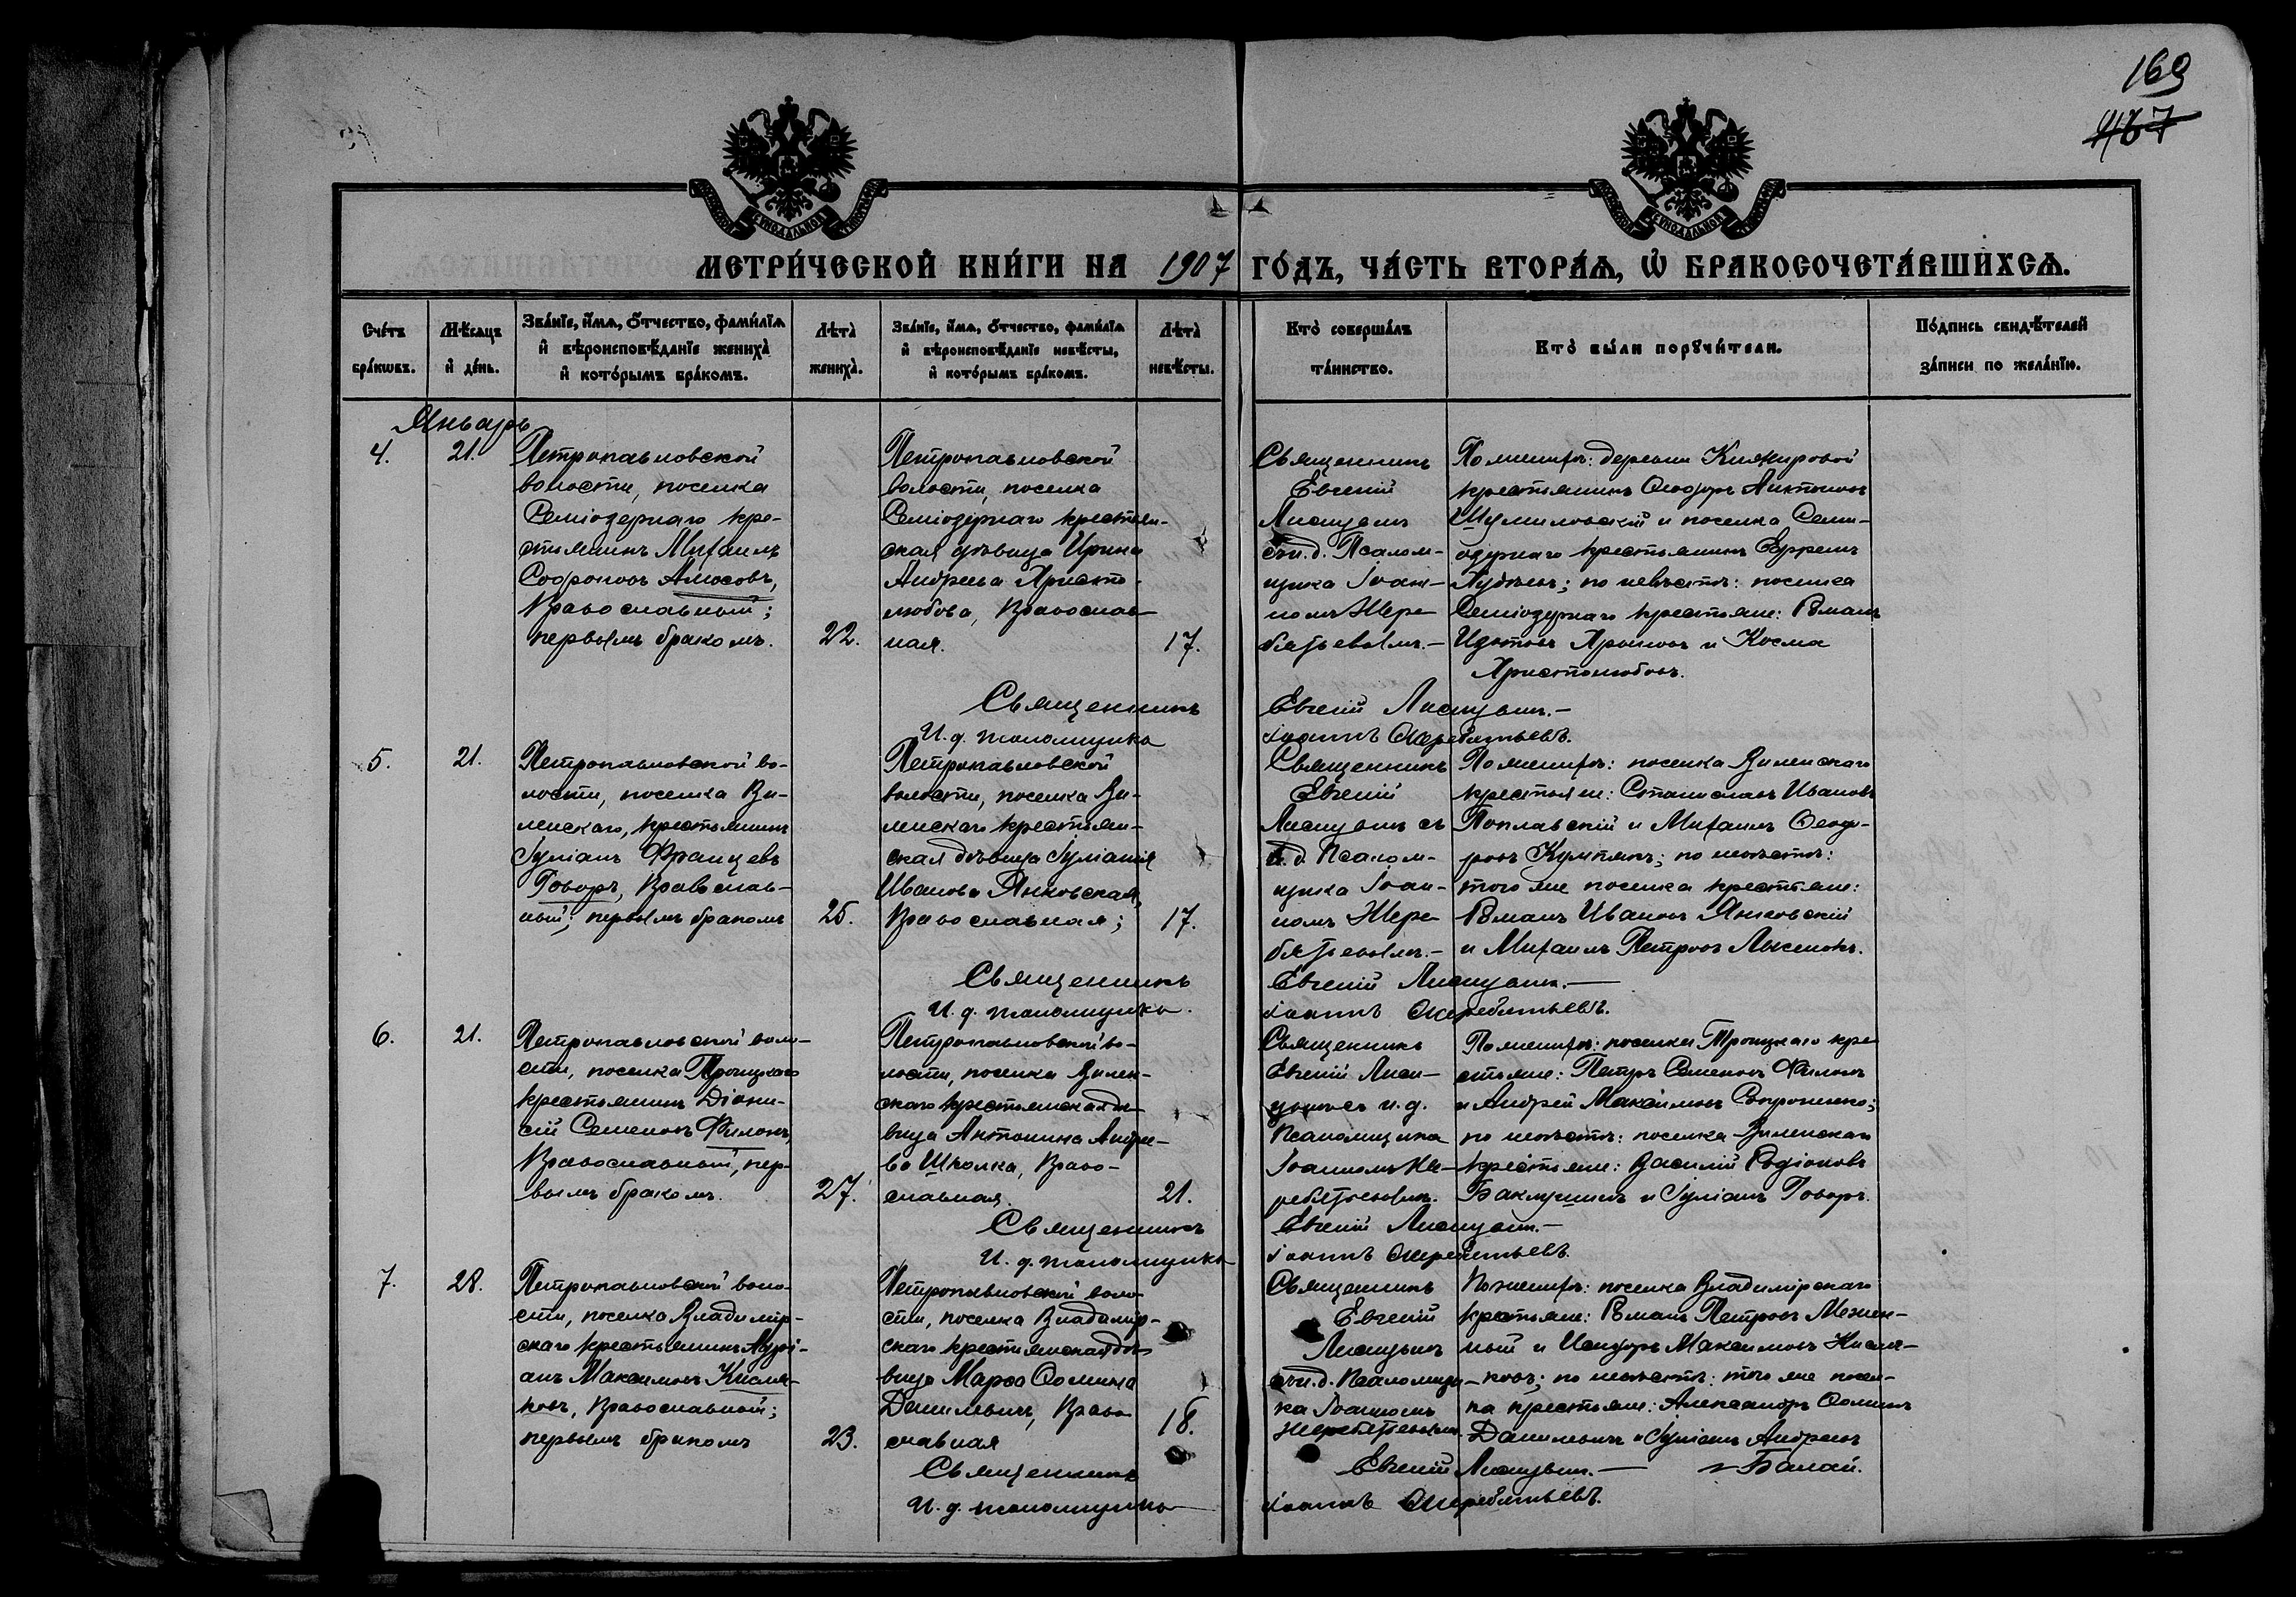 169
467
МЕТРИ́ЧЕСКОЙ КНИ́ГИ НА 1907 ГО́ДЪ, ЧА́СТЬ ВТОРА́Ѧ, Ѡ҆ БРАКОСОЧЕТА́ВШИХСѦ.
Сче́тъ бра́кωвъ.
Мѣ́сяцъ и҆ де́нь.
Зва́нїе, и҆́мя, ѻ҆́тчество, фами́лїя и҆ вѣроисповѣ́данїе жениха̀ и҆ кото́рымъ бра́комъ.
Лѣта̀ жениха̀.
Зва́нїе, и҆́мя, ѻ҆́тчество, фами́лїя и҆ вѣроисповѣ́данїе невѣ́сты, и҆ кото́рымъ бра́комъ.
Лѣта̀ невѣ́сты.
Кто̀ соверша́лъ та́инство.
Кто̀ бы́ли порꙋчи́тели.
По́дпись свидѣ́телей за́писи по жела́нїю.
Январь
4.
21.
Петропавловской
волости, поселка
Семіозернаго кре-
стьянинъ Михаилъ
Софроновъ Амосовъ,
Православный;
первымъ бракомъ.
22.
Петропавловской
волости, поселка
Семіозернаго крестьян-
ская дѣвица Ирина
Андреева Христо-
любова, Православ-
ная.
17.
Священникъ
Евгеній
Лисицынъ
съ и.д. Псалом-
щика Іоан-
номъ Жере-
бятьевымъ.-
По женихѣ: деревни
крестьянинъ Ѳеодоръ Антоновъ
Шумиловскій и поселка Семи-
озернаго крестьянинъ Ефремъ
по невѣстѣ: поселка
Семіозернаго крестьяне: Романъ
и Косма
Христолюбовъ.
Священникъ Евгеній Лисицынъ.-
И. д. псаломщика Іоаннъ Жеребятьевъ.
5.
21.
Петропавловской во-
лости, поселка Ви-
ленскаго, крестьянинъ
Іуліанъ Францевъ
Говоръ, Православ-
ный; первымъ бракомъ
25.
Петропавловской
волости, поселка Ви-
ленскаго крестьян-
ская дѣвица Іуліанія
Иванова Янковская,
Православная;
17.
Священникъ
Евгеній
Лисицынъ съ
и.д. Псалом-
щика Іоан-
номъ Жере-
бятьевымъ.-
По женихѣ: поселка Виленскаго
крестьяне: Станиславъ Ивановъ
Поплавскій и Михаилъ Ѳеодо-
ровъ по невѣстѣ:
того же поселка крестьяне:
Романъ Ивановъ Янковскій
и Михаилъ Петровъ
Священникъ Евгеній Лисицынъ.-
И. д. псаломщика Іоаннъ Жеребятьевъ.
6.
21.
Петропавловской воло-
сти, поселка Троицкаго
крестьянинъ Діони-
сій Семеновъ Филонъ,
Православный, пер-
вымъ бракомъ.
27.
Петропавловской во-
лости, поселка Вилен-
скаго крестьянская дѣ-
вица Антонина Андре-
ва Школка, Право-
славная.
21.
Священникъ
Евгеній Лиси-
цынъ съ и.д.
Псаломщика
Іоанномъ Же-
ребятьевымъ.
По женихѣ: поселка Троицкаго кре-
стьяне: Петръ Семеновъ Филонъ
и Андрей Максимовъ
по невѣстѣ: поселка Виленскаго
крестьяне: Василій Родіоновъ
Баклушинъ и Іуліанъ Говоръ.
Священникъ Евгеній Лисицынъ.-
И. д. псаломщика Іоаннъ Жеребятьевъ.
7.
28.
Петропавловской воло-
сти, поселка Владимір-
скаго крестьянинъ Андрі-
анъ Максимовъ Кисля-
ковъ, Православный;
первымъ бракомъ
23.
Петропавловской воло-
сти, поселка Владимір-
скаго крестьянская дѣ-
вица Марѳа Ѳомина
Данилевичъ, Право-
славная
18.
Священникъ
Евгеній
Лисицынъ
съ и.д. Псаломщи-
ка Іоанномъ
Жеребятьевымъ.
По женихѣ: поселка Владимірскаго
крестьяне: Романъ Петровъ
и Исидоръ Максимовъ Кисля-
ковъ; по невѣстѣ: того же посел-
ка крестьяне: Александръ Ѳоминъ
Данилевичъ и Іуліанъ Андреевъ
Балай.
Священникъ Евгеній Лисицынъ.-
И. д. псаломщика Іоаннъ Жеребятьевъ.